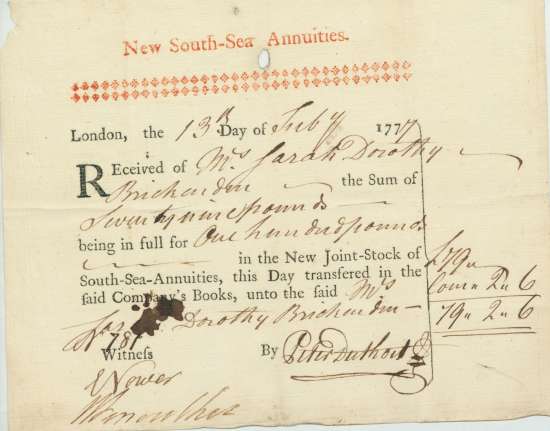 New South-Sea Annuities.
London, the 13th Day of Feby 1777
REceived of Mrs Sarah Dorothy
Brichenden the Sum of
Seventy nine pounds
being in full for One hundred pounds
in the New Joint-Stock of
South-Sea-Annuities, this Day transfered in the
said Company's Books, unto the said Mrs
Dorothy Brichenden
£79 "
2 " 6
79 " 2 " 6
Witness By Peter